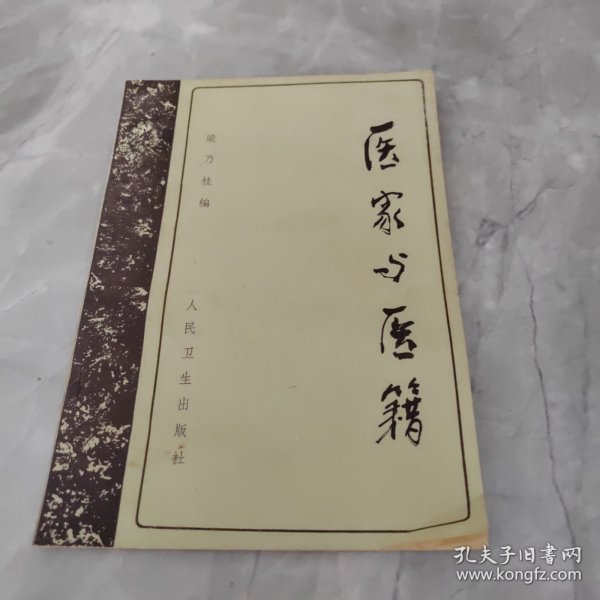 医家与医籍
梁乃桂编
人民卫生出版社
孔夫子旧书网
www.kongfz.com